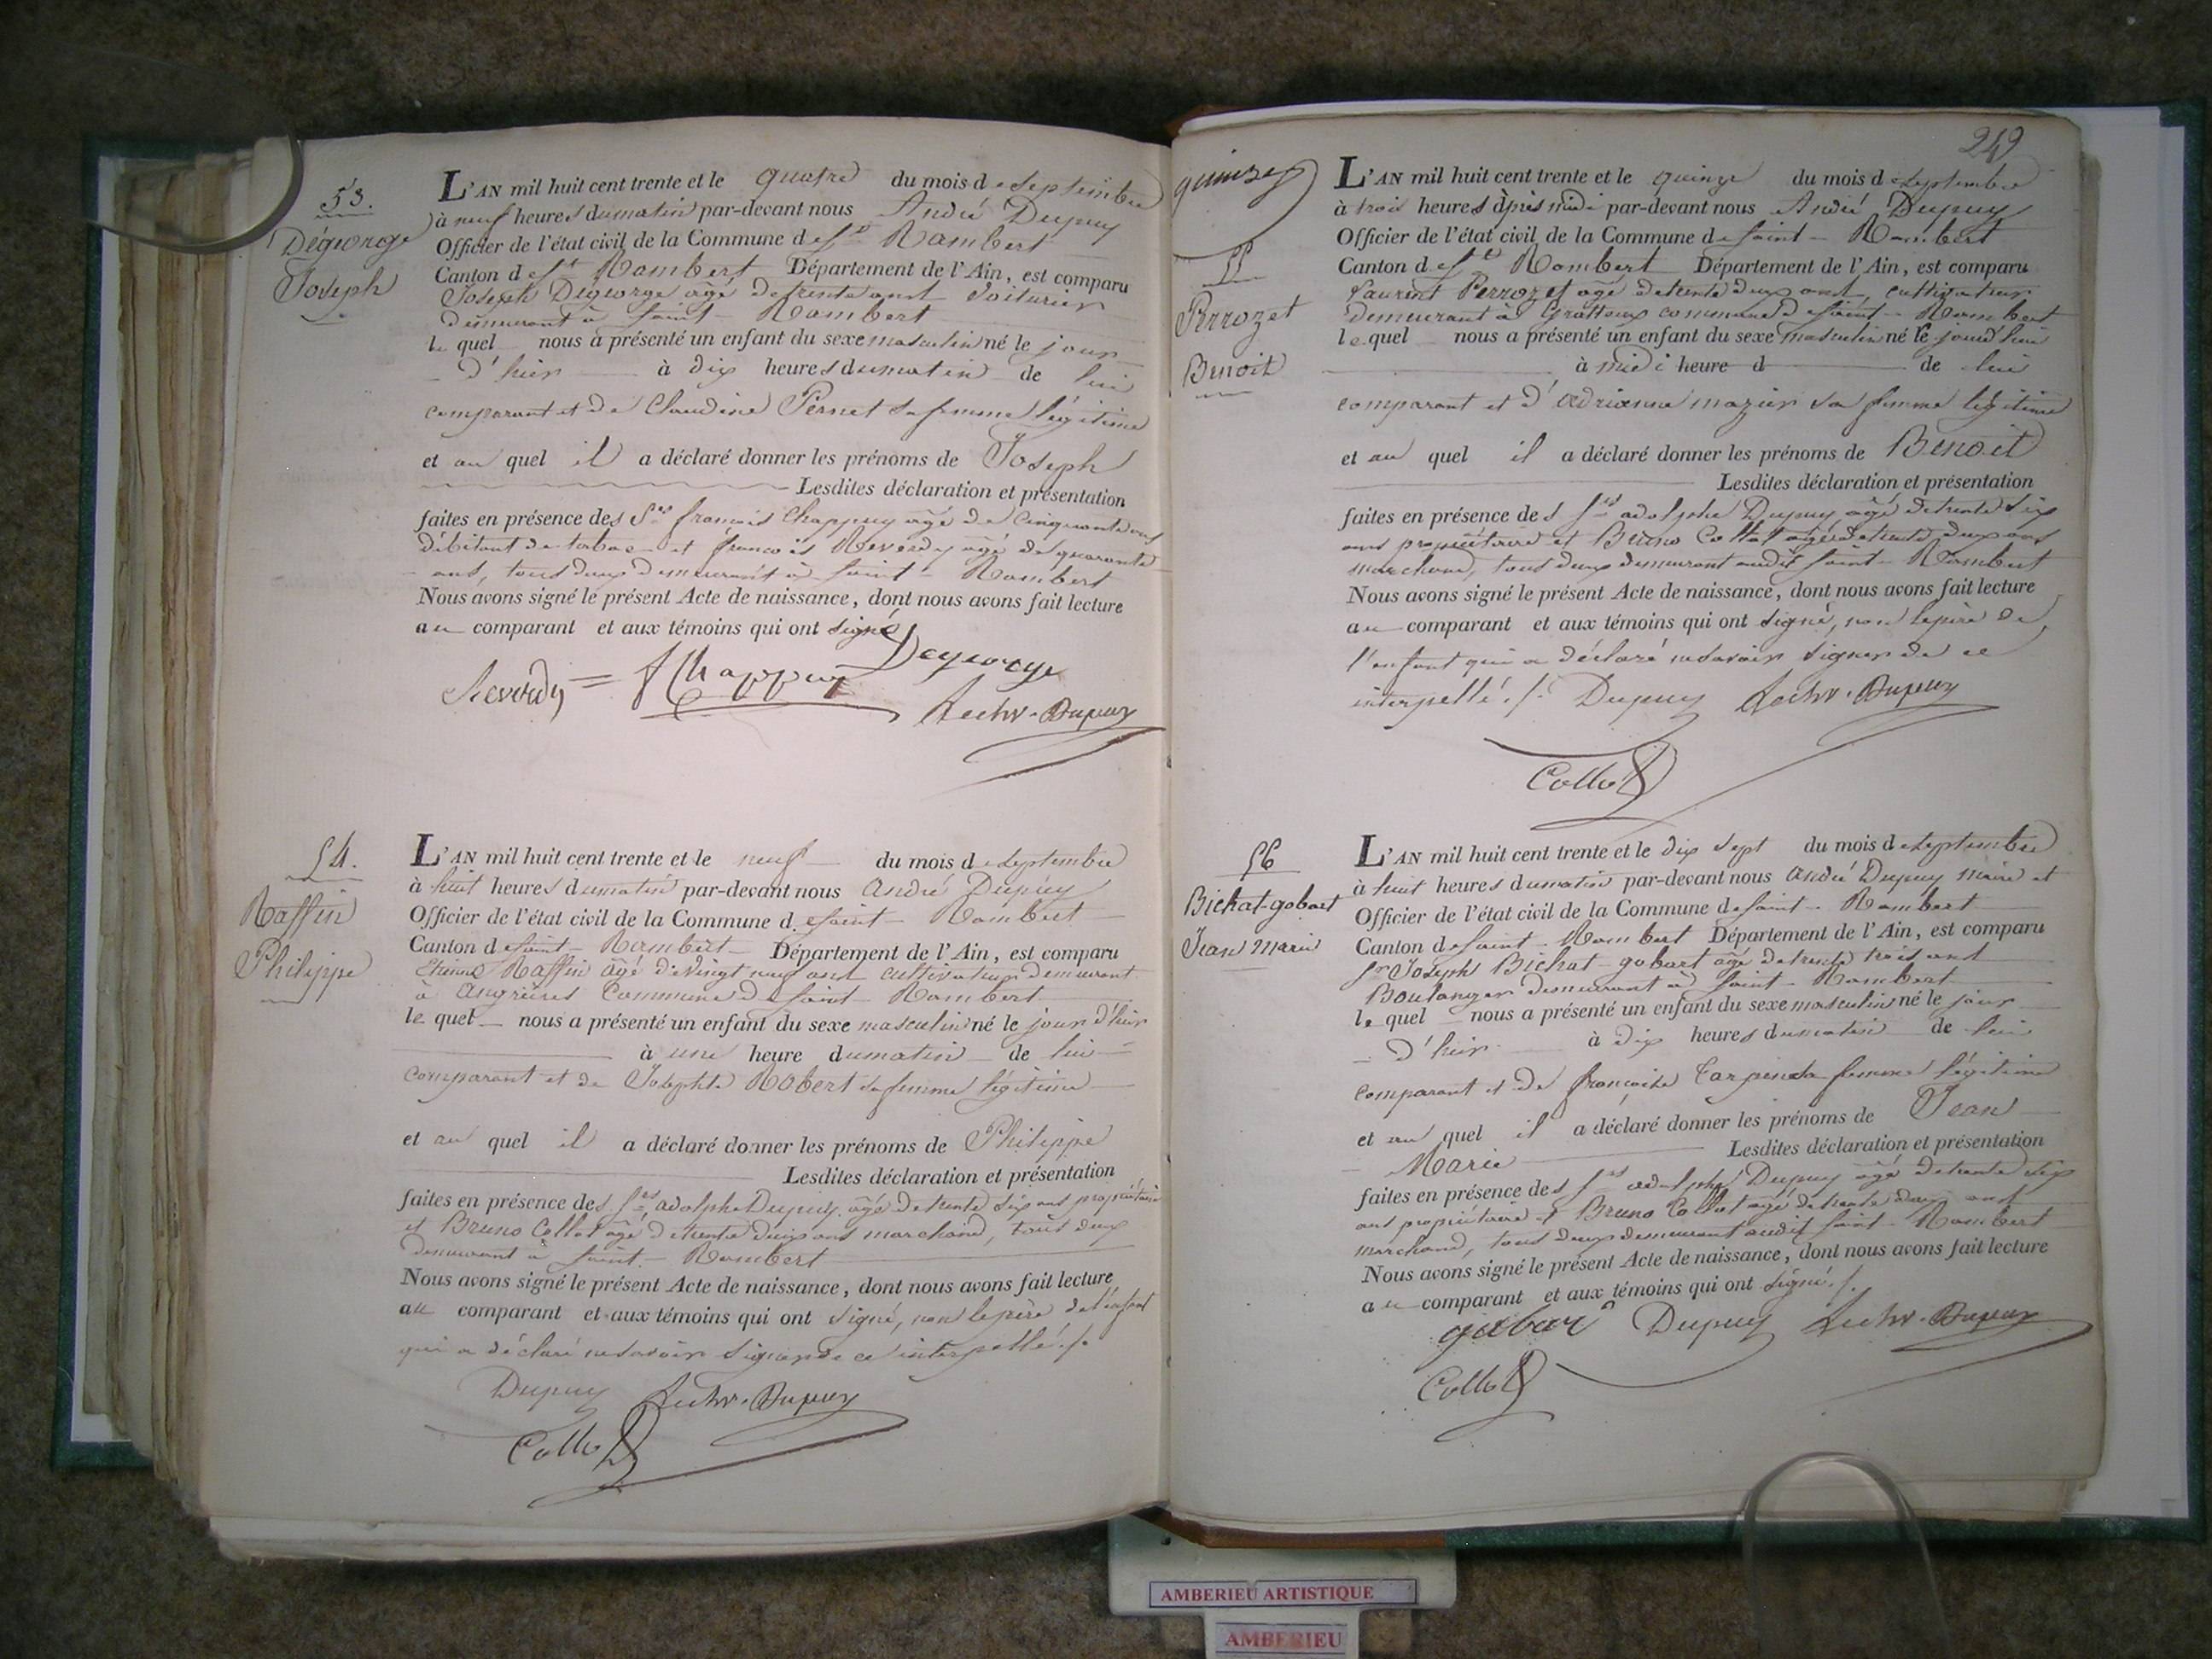 53.
Dégeorge
Joseph
L'AN mil huit cent trente et le quatre du mois de Septembre
à neuf heures du matin par-devant nous André Dupuy
Officier de l'état civil de la Commune de St Rambert
Canton de St Rambert Département de l'Ain, est comparu
Joseph Dégeorge agé de trente ans Voiturier
demeurant à Saint-Rambert
le quel nous a présenté un enfant du sexe masculin né le jour
d'hier à dix heures du matin de lui
comparant et de Claudine Pernet sa femme légitime
et au quel il a déclaré donner les prénoms de Joseph
Lesdites déclaration et présentation
faites en présence des Srs françois Chappuy agé de cinquante ans
débitant de tabac et françois Reverdy agé de quarante
ans, tous deux demeurant à Saint-Rambert
Nous avons signé le présent Acte de naissance, dont nous avons fait lecture
au comparant et aux témoins qui ont signé
Degeorge
Reverdy = f Chappuy
Dupuy
54.
Raffin
Philippe
L'AN mil huit cent trente et le neuf du mois de Septembre
à huit heures du matin par-devant nous André Dupuy
Officier de l'état civil de la Commune de Saint-Rambert
Canton de Saint-Rambert Département de l'Ain, est comparu
Etienne Raffin âgé de vingt neuf ans cultivateur demeurant
à Angrières Commune de Saint-Rambert
le quel nous a présenté un enfant du sexe masculin né le jour d'hier
à une heure du matin de lui
comparant et de Josephte Robert sa femme légitime
et au quel il a déclaré donner les prénoms de Philippe
Lesdites déclaration et présentation
faites en présence des Srs adolphe Dupuy agé de trente six ans propriétaire
et Bruno Collot agé de trente deux ans marchand, tous deux
demeurant à Saint-Rambert
Nous avons signé le présent Acte de naissance, dont nous avons fait lecture
au comparant et aux témoins qui ont signé, non le père de l'enfant
qui a déclaré ne savoir signer de ce interpellé ./.
Dupuy Dupuy
Collot
249
quinze
55
Perrozet
Benoit
L'AN mil huit cent trente et le quinze du mois de Septembre
à trois heures après midi par-devant nous André Dupuy
Officier de l'état civil de la Commune de Saint-Rambert
Canton de St Rambert Département de l'Ain, est comparu
Laurent Perrozet agé de trente deux ans, cultivateur
demeurant à Grattoux commune de Saint-Rambert
le quel nous a présenté un enfant du sexe masculin né le jourd'hui
à midi heure d de lui
comparant et d'adrianne mazuir sa femme légitime
et au quel il a déclaré donner les prénoms de Benoit
Lesdites déclaration et présentation
faites en présence des Srs adolphe Dupuy âgé de trente six
ans propriétaire et Bruno Collot agé de trente deux ans
marchand, tous deux demeurant audit Saint-Rambert
Nous avons signé le présent Acte de naissance, dont nous avons fait lecture
au comparant et aux témoins qui ont signé, non le père de
l'enfant qui a déclaré ne savoir signer de ce
interpellé ./. Dupuy Dupuy
Collot
56
Bichat-gobart
Jean Marie
L'AN mil huit cent trente et le dix sept du mois de Septembre
à huit heures du matin par-devant nous André Dupuy maire et
Officier de l'état civil de la Commune de Saint-Rambert
Canton de Saint-Rambert Département de l'Ain, est comparu
Sr Joseph Bichat-gobart agé de trente trois ans
Boulanger demeurant à Saint-Rambert
le quel nous a présenté un enfant du sexe masculin né le jour
d'hier à dix heures du matin de lui
comparant et de françoise sa femme légitime
et au quel il a déclaré donner les prénoms de Jean
Marie Lesdites déclaration et présentation
faites en présence des Srs adolphe Dupuy âgé de trente six
ans propriétaire et Bruno Collot agé de trente deux ans
marchand, tous deux demeurant audit Saint-Rambert
Nous avons signé le présent Acte de naissance, dont nous avons fait lecture
au comparant et aux témoins qui ont signé ./.
gobar Dupuy Dupuy
Collot
AMBERIEU ARTISTIQUE
AMBERIEU